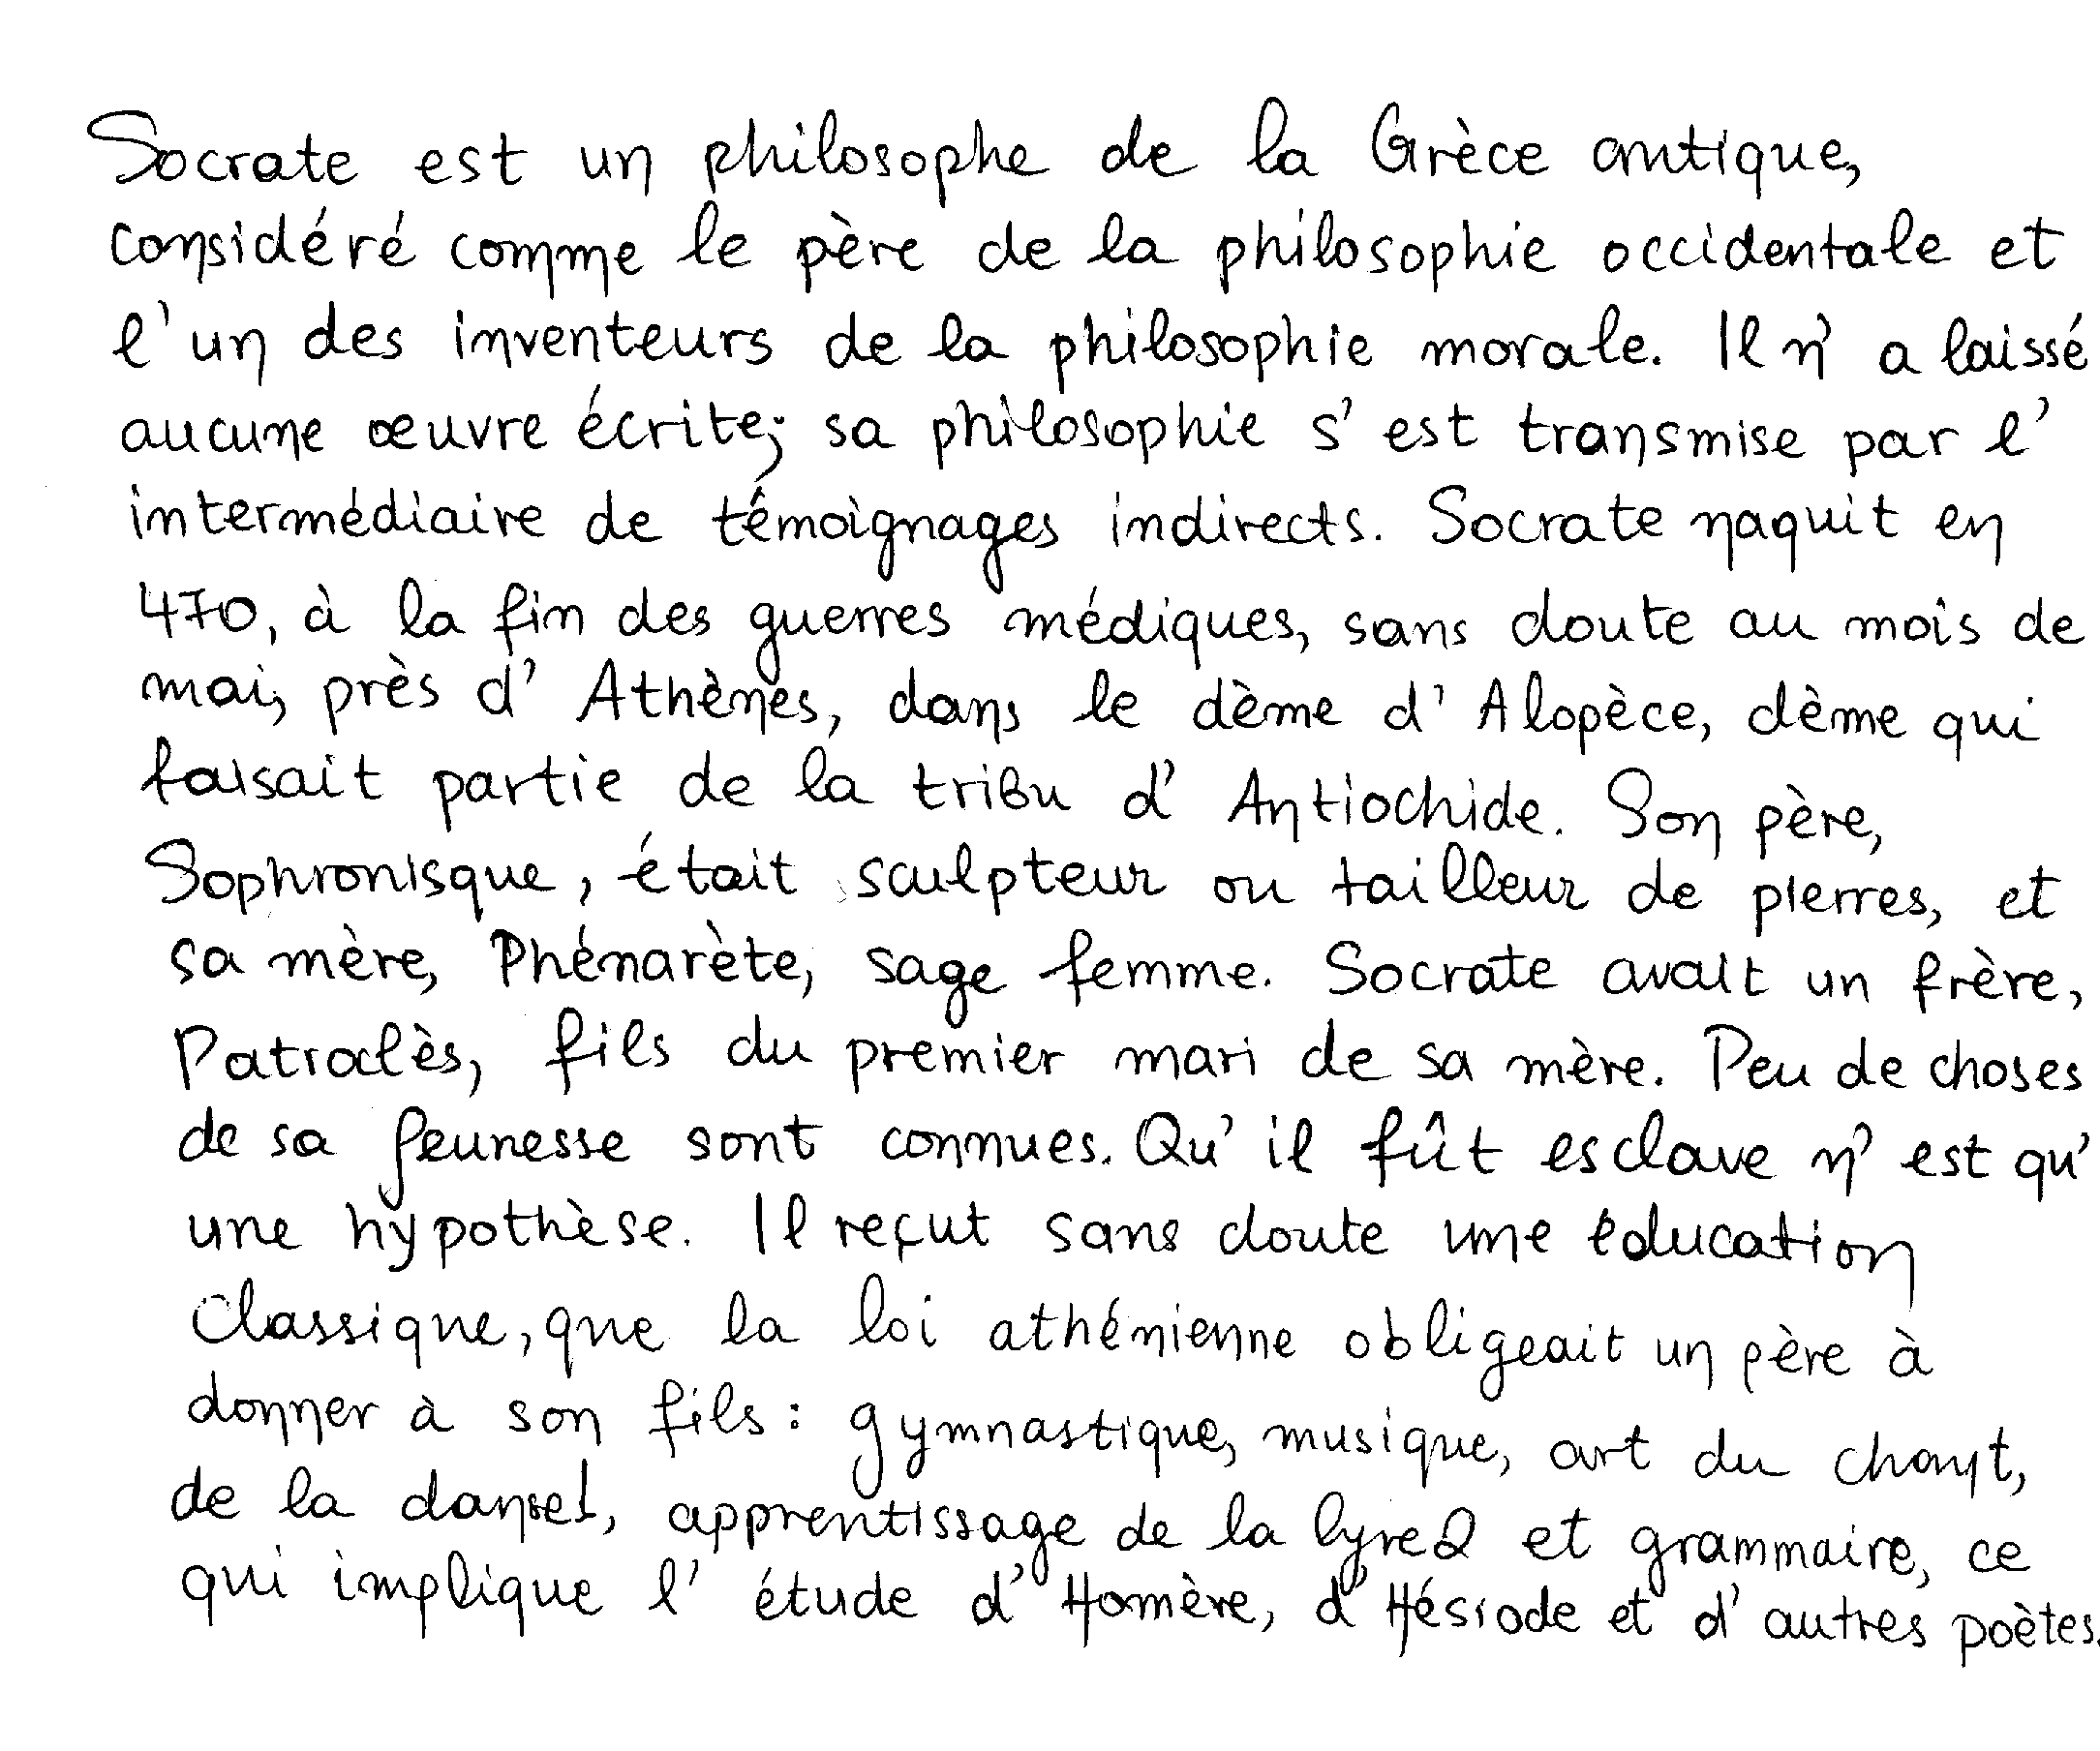 Socrate est un philosophe de la Grèce antique,
considéré comme le père de la philosophie occidentale et
l'un des inventeurs de la philosophie morale. Il n'a laissé
aucune œuvre écrite; sa philosophie s'est transmise par l'
intermédiaire de témoignages indirects. Socrate naquit en
470, à la fin des guerres médiques, sans doute au mois de
mai, près d'Athènes, dans le dème d'Alopèce, dème qui
faisait partie de la tribu d'Antiochide. Son père,
Sophronisque, était sculpteur ou tailleur de pierres, et
sa mère, Phénarète, sage femme. Socrate avait un frère,
Patroclès, fils du premier mari de sa mère. Peu de choses
de sa jeunesse sont connues. Qu'il fût esclave n'est qu'
une hypothèse. Il reçut sans doute une éducation
classique, que la loi athénienne obligeait un père à
donner à son fils : gymnastique, musique, art du chant,
de la danse1, apprentissage de la lyre2 et grammaire, ce
qui implique l'étude d'Homère, d'Hésiode et d'autres poètes.